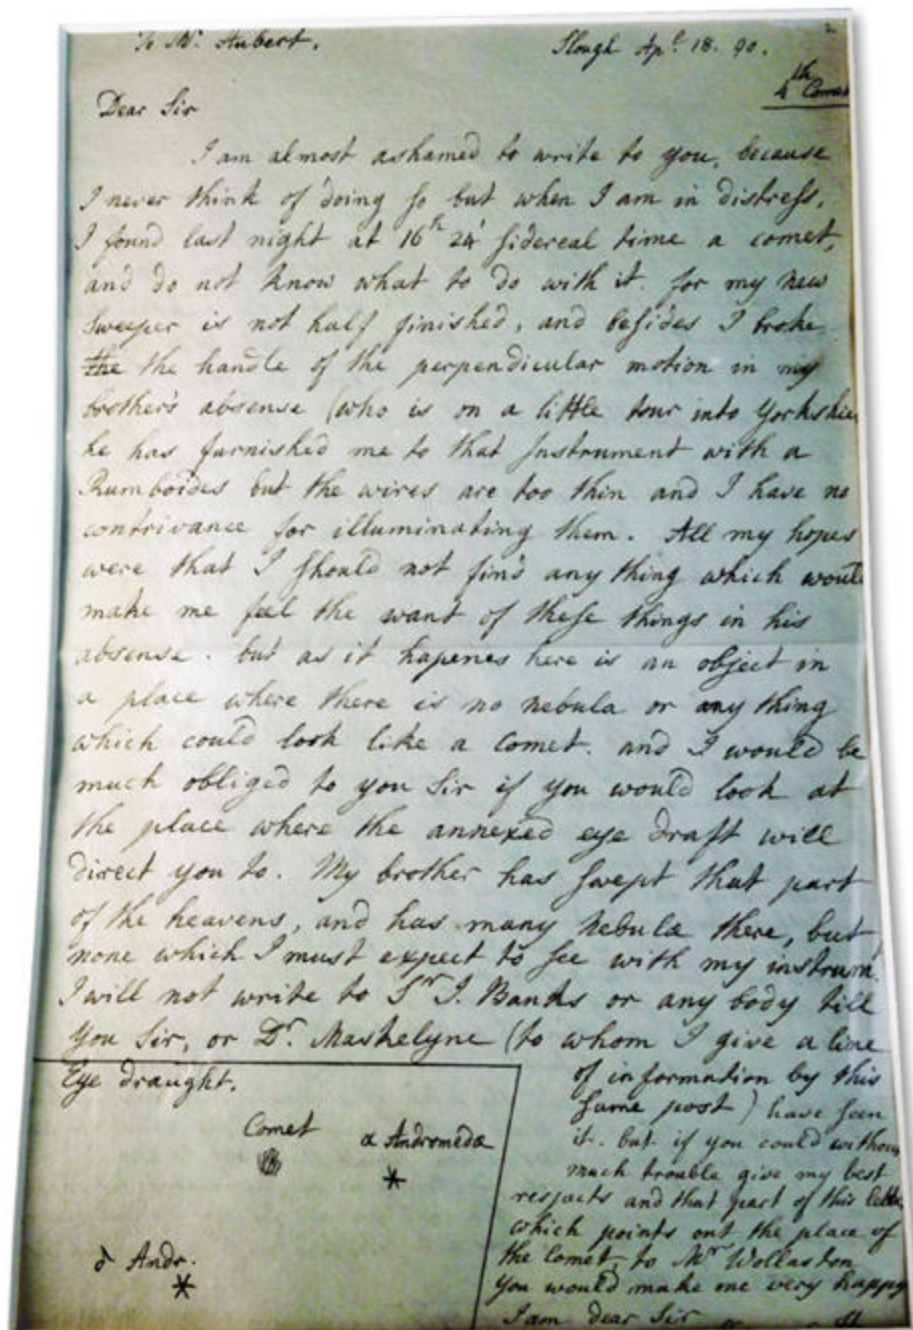 To Mr. Aubert.
Slough Apl. 18. 90.
2
4th Comet
Dear Sir
I am almost ashamed to write to you, because
I never think of doing so but when I am in distress.
I found last night at 16h 24' sidereal time a comet,
and do not know what to do with it. for my new
Sweeper is not half finished, and besides I broke
the the handle of the perpendicular motion in my
brother's absense (who is on a little tour into Yorkshire
he has furnished me to that Instrument with a
Rumboides but the wires are too thin and I have no
contrivance for illuminating them. All my hopes
were that I should not find any thing which would
make me feel the want of these things in his
absense. but as it hapenes here is an object in
a place where there is no nebula or any thing
which could look like a comet. and I would be
much obliged to you Sir if you would look at
the place where the annexed eye draft will
direct you to. My brother has swept that part
of the heavens, and has many nebulæ there, but
none which I must expect to see with my instrumt
I will not write to Sr. J. Banks or any body till
You Sir, or Dr. Maskelyne (to whom I give a line
of information by this
same post) have seen
it. but if you could without
much trouble give my best
respects and that part of this letter
which points out the place of
the Comet, to Mr Wollaston
You would make me very happy
I am dear Sir
Eye draught.
Comet
α Andromedæ
δ Andr.